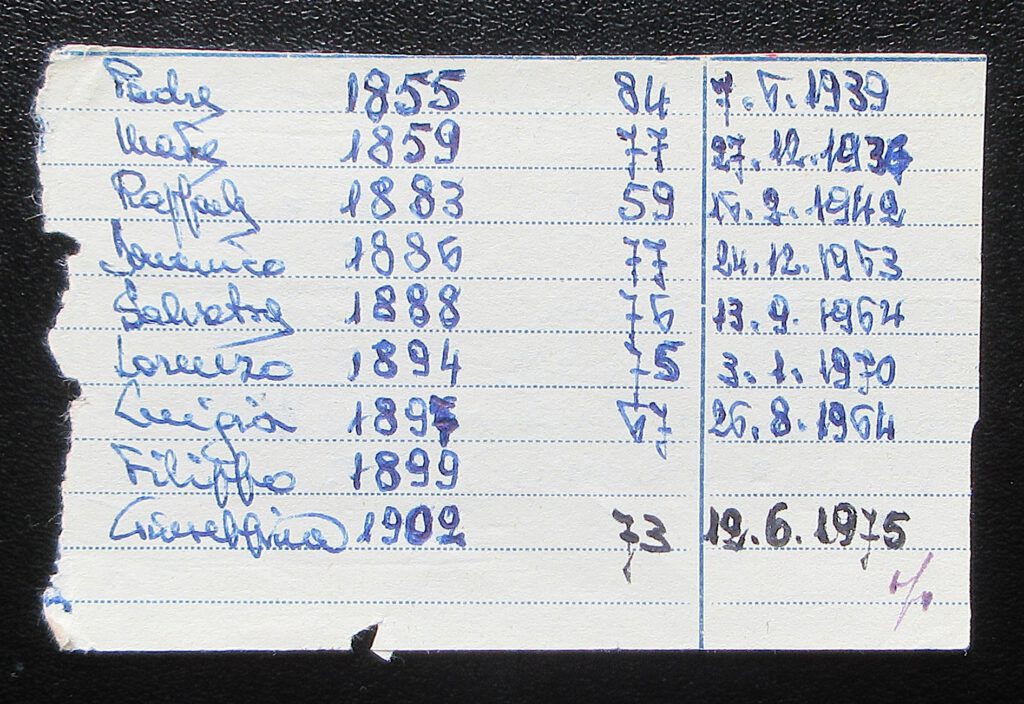 Padre 1855 84 7.6.1939
Madre 1859 77 27.12.1936
Raffaele 1883 59 16.2.1942
Domenico 1886 77 24.12.1963
Salvatore 1888 76 13.9.1964
Lorenzo 1894 75 3.1.1970
Luigia 1897 67 26.8.1964
Filippo 1899
Giuseppina 1902 73 12.6.1975